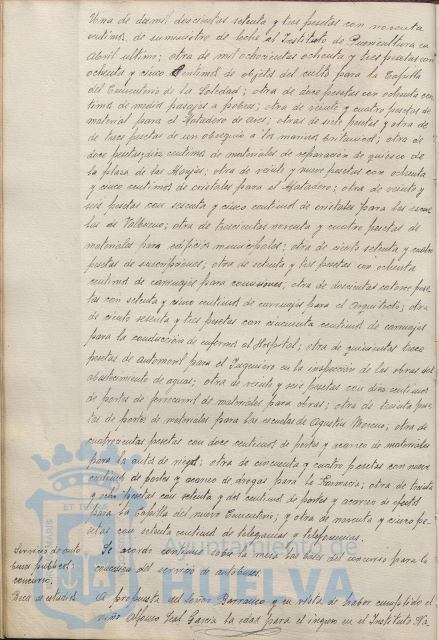 Una de dosmil doscientas setenta y tres pesetas con noventa
centimos de suministro de leche al Instituto de Puericultura en
Abril ultimo; otra de mil ochocientas ochenta y tres pesetas con
ochenta y cinco centimos de objetos del culto para la Capilla
del Cementerio de la Soledad; otra de doce pesetas con ochenta cen-
timos de medios pasajes a pobres; otra de veinte y cuatro pesetas de
material para el Matadero de aves; otras de siete pesetas y otra de
de trece pesetas de un obsequio a los marinos britanicos; otra de
doce pesetas diez centimos de materiales de reparación de quiosco de
la plaza de las Monjas; otra de veinte y nueve pesetas con ochenta
y cinco centimos de cristales para el Matadero; otra de veinte y
seis pesetas con sesenta y cinco centimos de cristales para las escue-
las de Valbueno; otra de trescientas noventa y cuatro pesetas de
materiales para edificios municipales; otra de ciento setenta y cuatro
pesetas de suscripciones; otra de setenta y tres pesetas con ochenta
centimos de carruajes para comisiones; otra de doscientas catorce pese-
tas con setenta y cinco centimos de carruajes para el Arquitecto; otra
de ciento sesenta y tres pesetas con cincuenta centimos de carruajes
para la conducción de enfermos al Hospital; otra de quinientas trece
pesetas de automovil para el Ingeniero en la inspección de las obras del
abastecimiento de aguas; otra de veinte y seis pesetas con diez centimos
de portes de ferrocarril de materiales para obras; otra de treinta pese-
tas de portes de materiales para las escuelas de Agustin Moreno; otra de
cuatrocientas pesetas con doce centimos de portes y acarreo de materiales
para la auto de riego; otra de cincuenta y cuatro pesetas con nueve
centimos de portes y acarreo de drogas para la Farmacia; otra de treinta
y seis pesetas con setenta y dos centimos de portes y acarreo de efectos
para la Capilla del nuevo Cementerio; y otra de noventa y cinco pe-
setas con setenta centimos de telegramas y telefonemas.
Servicio de auto
buses publicos:
concurso.
Se acordó continuar sobre la mesa las bases del concurso para la
concesión del servicio de autobuses.
Beca de estudios.
A propuesta del señor Barranco y en vista de haber cumplido el
niño Alfonso Leal Garcia la edad para el ingreso en el Instituto
Ayuntamiento de
HUELVA